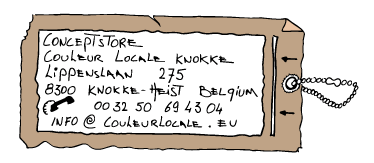 CONCEPTSTORE
COULEUR LOCALE KNOKKE
LIPPENSLAAN 275
8300 KNOKKE-HEIST BELGIUM
00 32 50 69 43 04
INFO @ COULEURLOCALE . EU